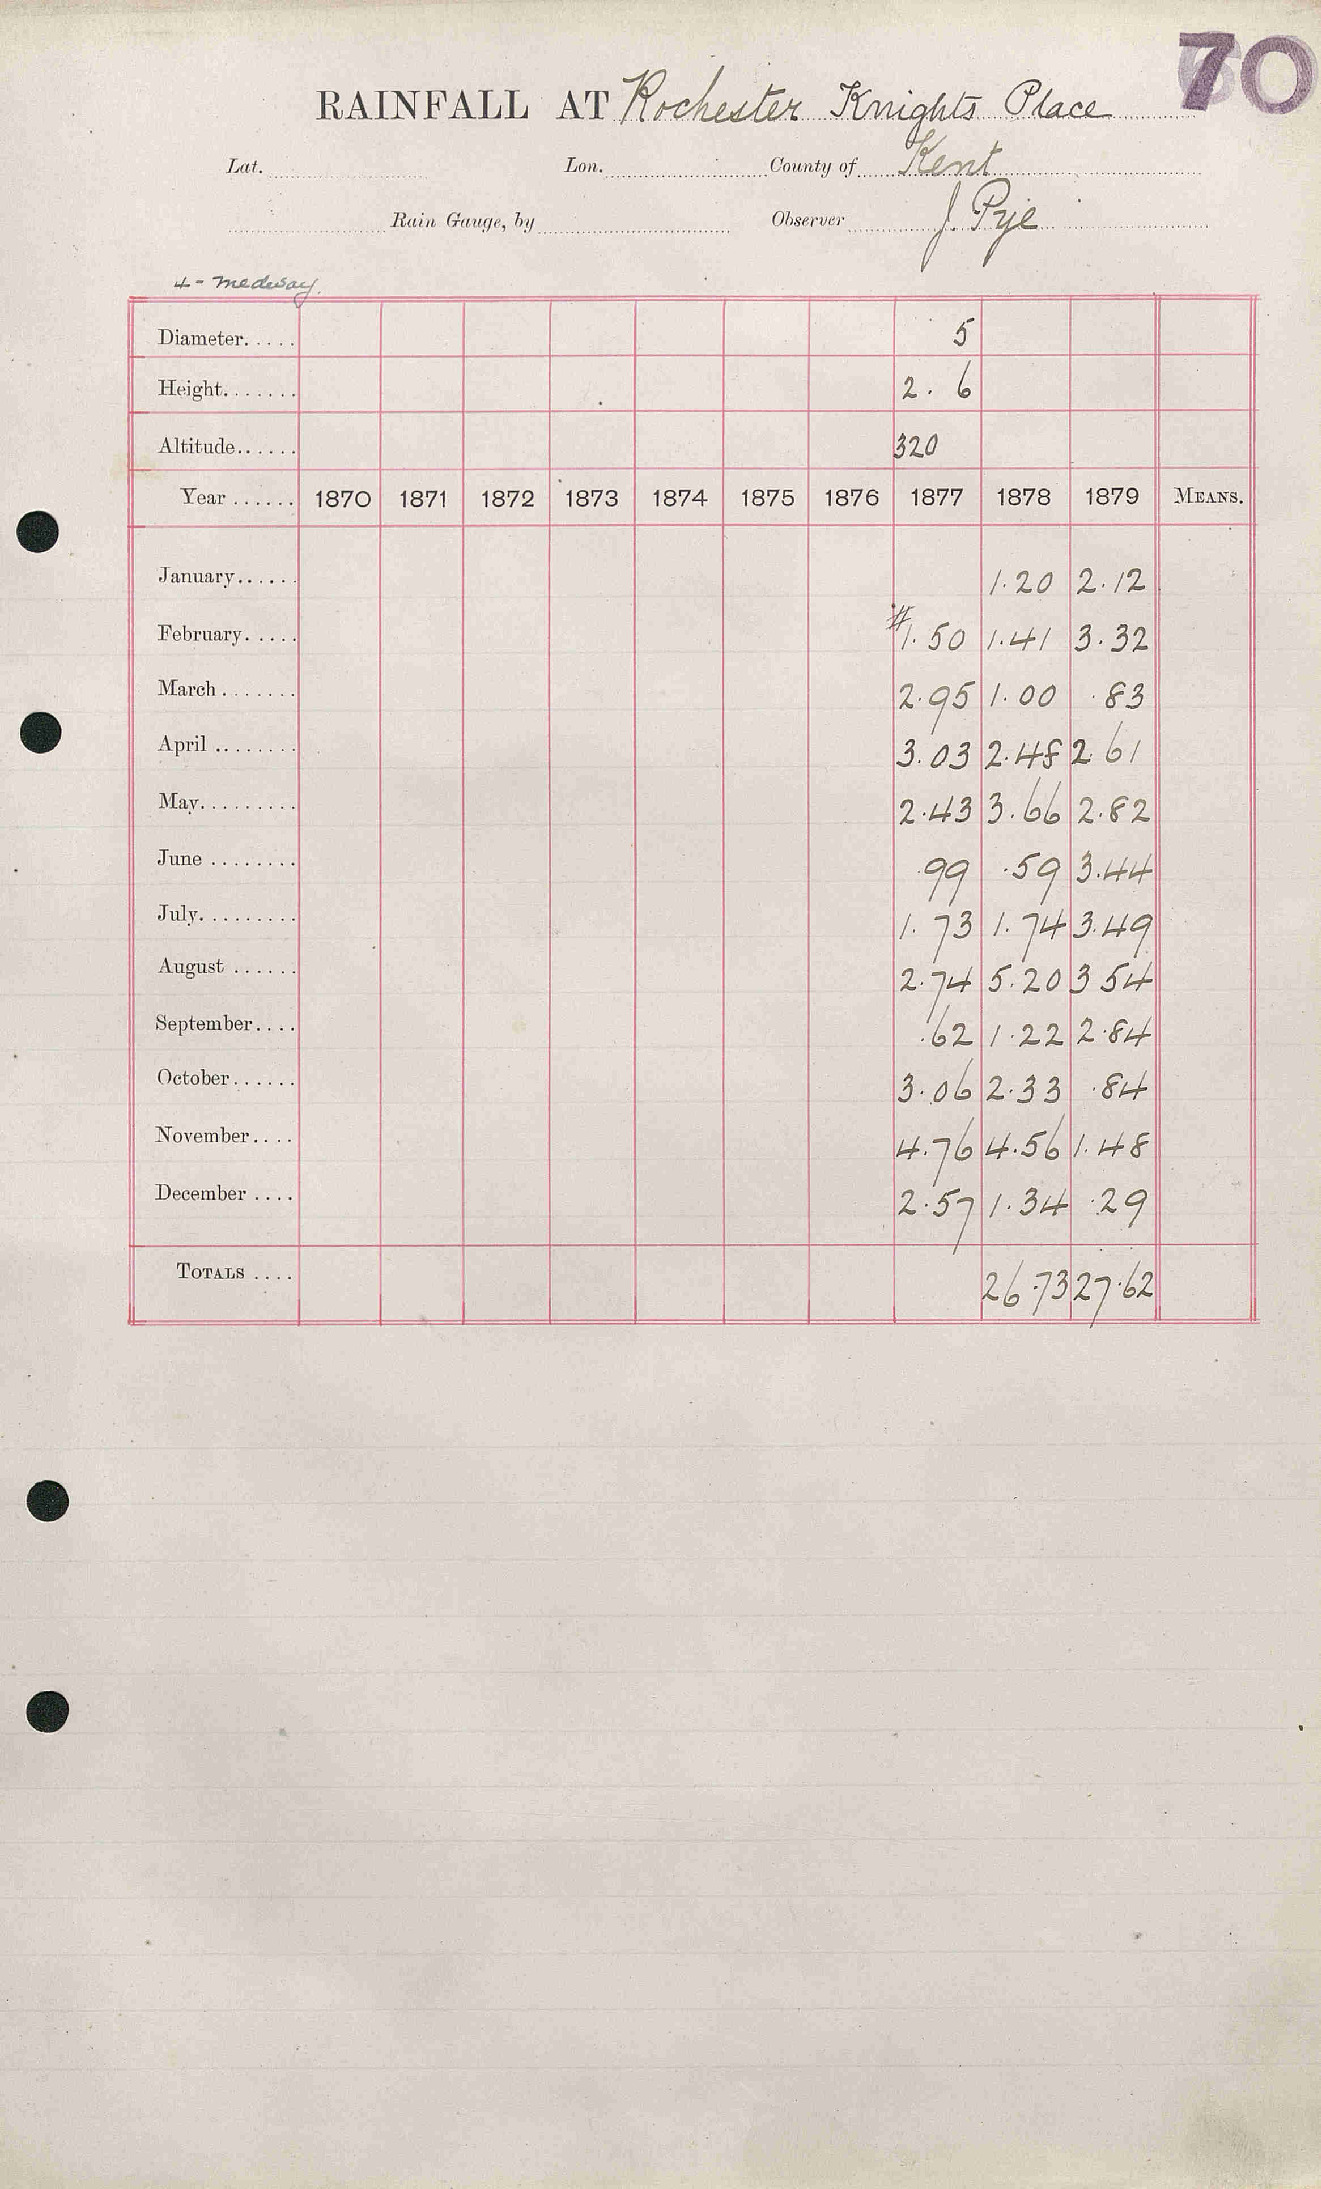 70
RAINFALL AT Rochester Knights Place
Lat. Lon. County of Kent
Rain Gauge, by Observer J. Pye
4 - Medway.
Diameter..... 5
Height....... 2. 6
Altitude...... 320
Year ...... 1870 1871 1872 1873 1874 1875 1876 1877 1878 1879 MEANS.
January...... 1.20 2.12
February..... #1.50 1.41 3.32
March ....... 2.95 1.00 .83
April ........ 3.03 2.48 2.61
May......... 2.43 3.66 2.82
June ........ .99 .59 3.44
July......... 1.73 1.74 3.49
August ...... 2.74 5.20 3 54
September.... .62 1.22 2.84
October...... 3.06 2.33 .84
November.... 4.76 4.56 1.48
December .... 2.57 1.34 .29
TOTALS .... 26.73 27.62